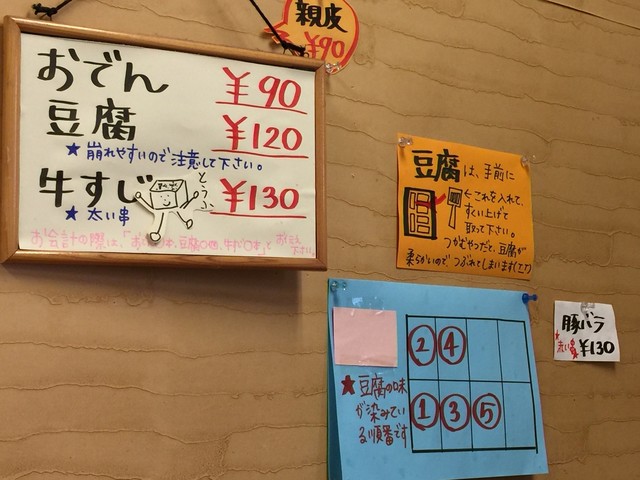 親皮
¥90
おでん ¥90
豆腐 ¥120
★崩れやすいので注意して下さい。
牛すじ ¥130
★太い串
とうふ
お会計の際は、「おでん○本、豆腐○個、牛すじ○本」と
下さい。
豆腐は、手前に
←これを入れて、
すくい上げて
取って下さい。
つかむやつだと、豆腐が
柔らかいので つぶれてしまいます(T_T)
② ④
① ③ ⑤
★豆腐の味
が染みてい
る順番です
豚バラ
★太い串 ¥130